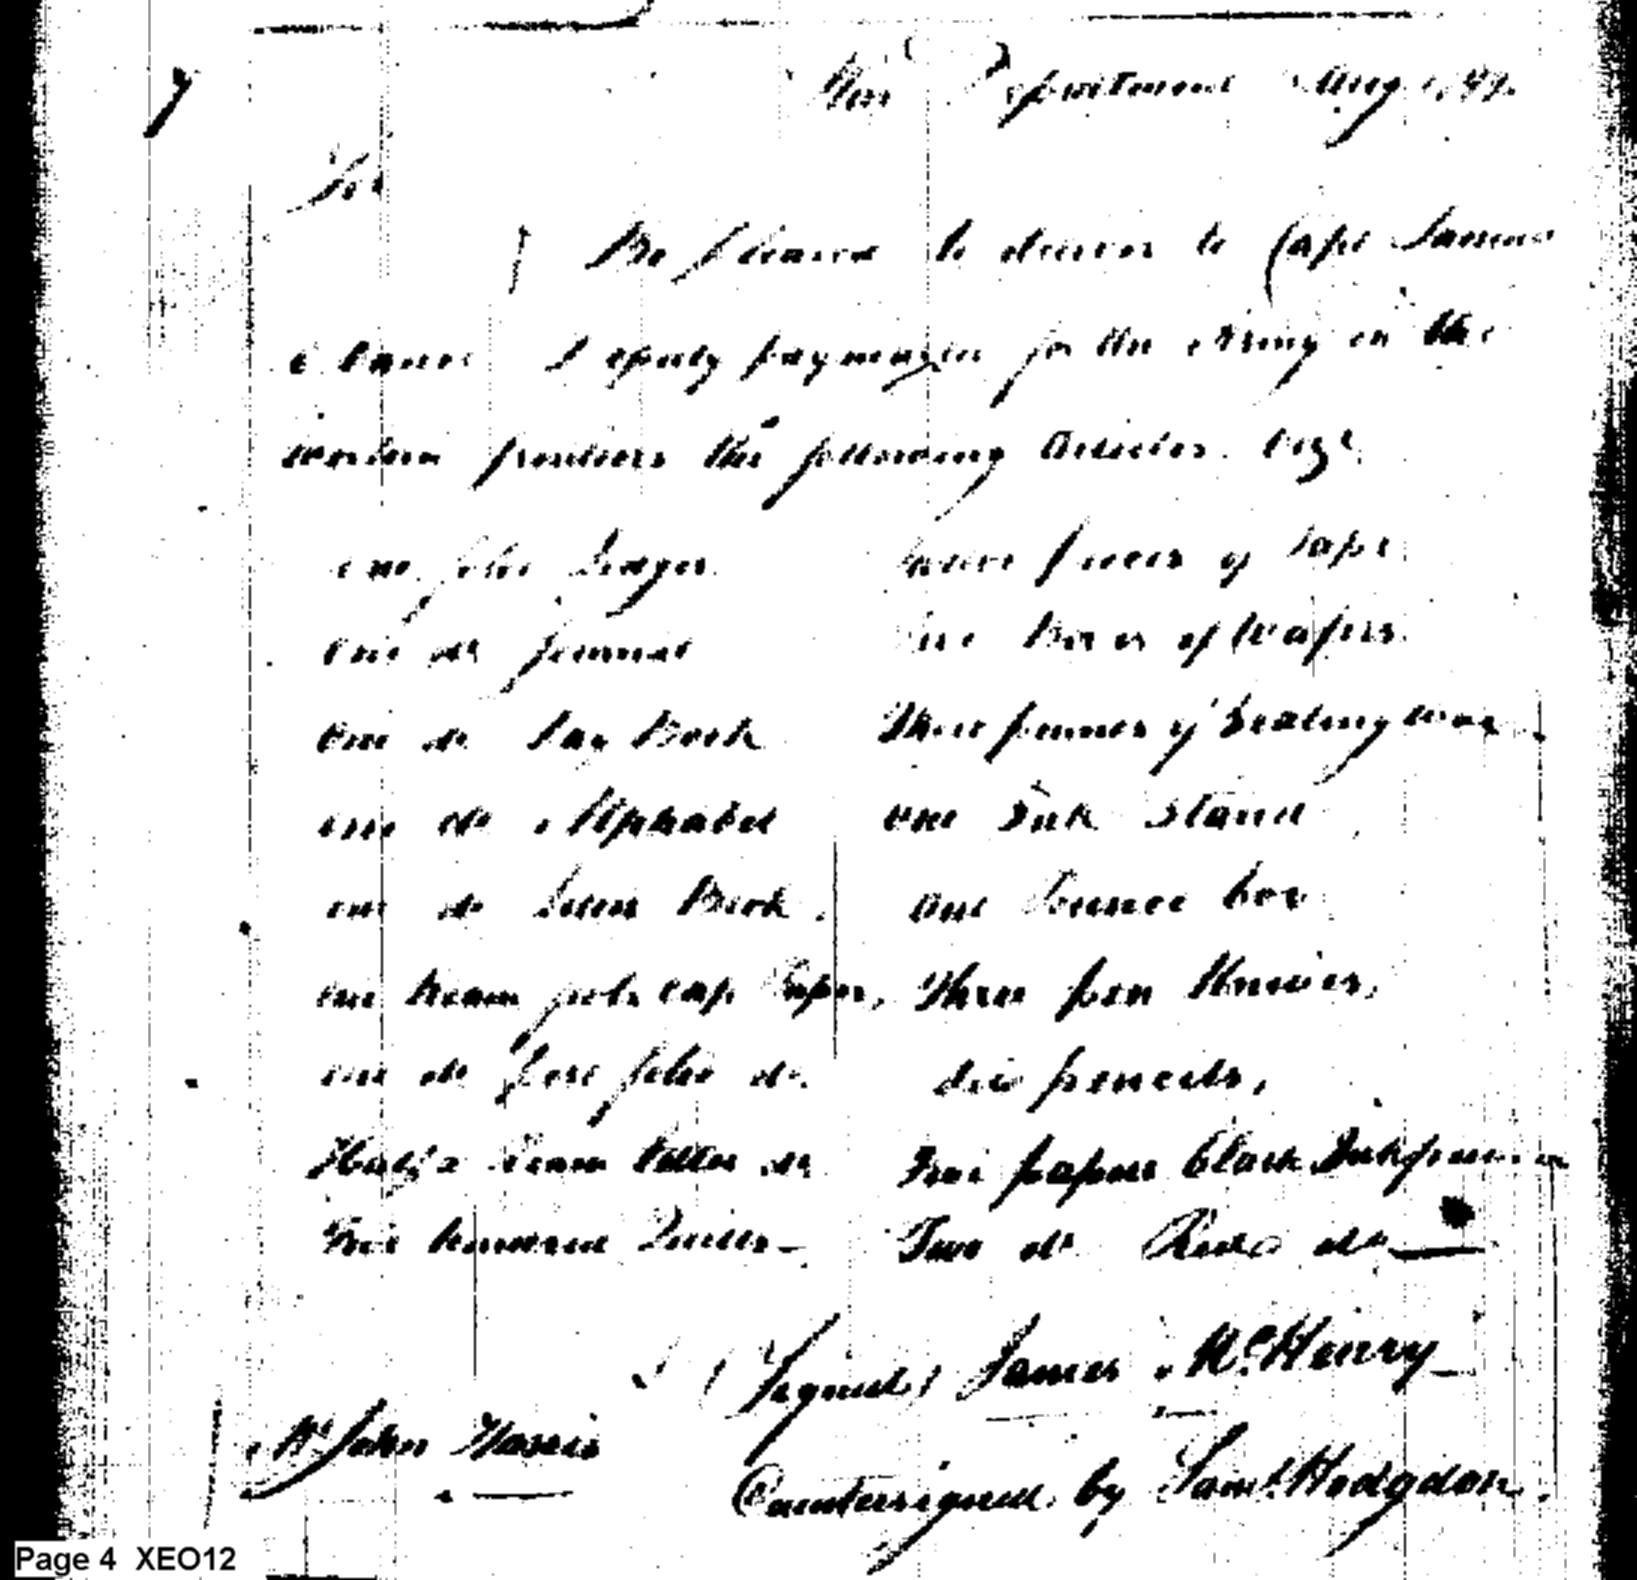 7
War Department Aug
Sir
Be pleased to deliver to Capt
Deputy paymaster for the Army on the
western frontiers the following Articles. Viz.
one folio Ledger
One do Journal
One do Day Book
one do Alphabet
one do Letter Book.
one Ream fools cap Paper,
one do Post folio do.
Half a ream letter do
hundred Quills
pieces of Tape.
Boxes of Wafers.
Three pounds of Sealing wax
one Ink Stand
one Pounce box
Three pen Knives,
Six pencils,
papers black Ink powder
Two do Red do
(Signed) James McHenry
Mr John Harris
Countersigned by Saml. Hodgdon.
Page 4 XEO12